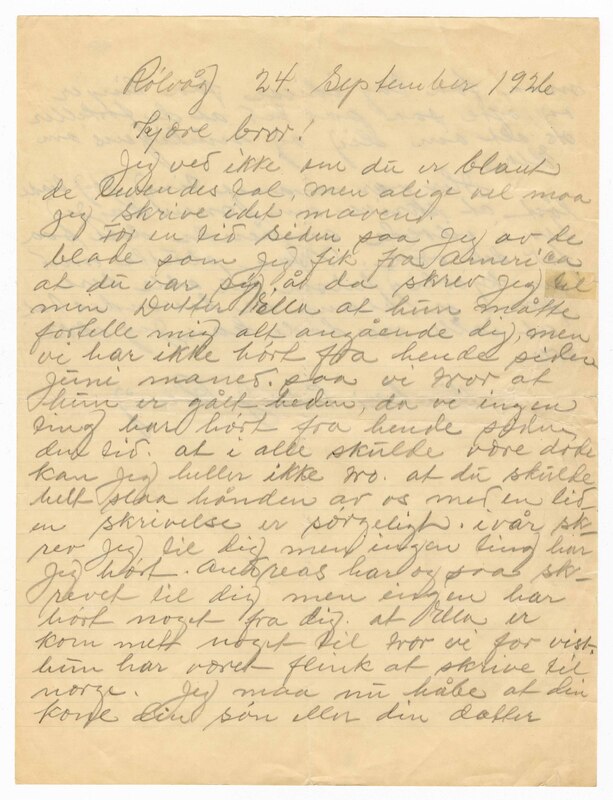 Rølvåg 24. September 1926
Kjære bror!
Jeg ved ikke om du er blant
de levendes tal, men alige vel maa
jeg skrive idet
For en tid siden saa Jeg av de
blade som jeg fik fra America
at du var syg, åt da skrev Jeg til
min Datter Ella at hun måtte
fortelle mig alt angående dig, men
vi har ikke hört fra hende siden
Juni maned. saa vi tror at
hun er gålt heden, da vi ingen
ting har hört fra hende siden
den tid. at i alle skulde være döde
kan Jeg heller ikke tro. at du skulde
helt slaa hånden av os med en lid
en skrivelse er sørgeligt. ivår sk-
rev Jeg til dig men ingen ting har
Jeg hört. Andreas har og saa sk-
revet til dig men eingen har
hört noget fra dig. at Ella er
kom mett noget til tror vi for vist.
hun har været flink at skrive til
norge. Jeg maa nu håbe at din
kone din søn eller din datter